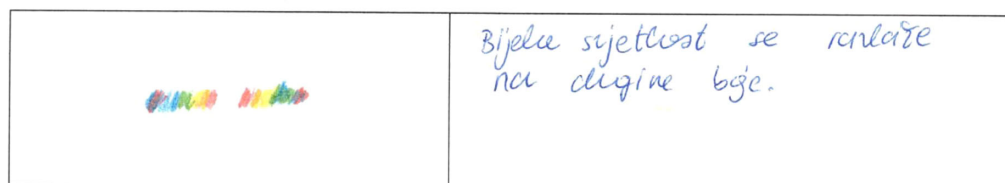 Bijela svjetlost se razlaže
na dugine boje.